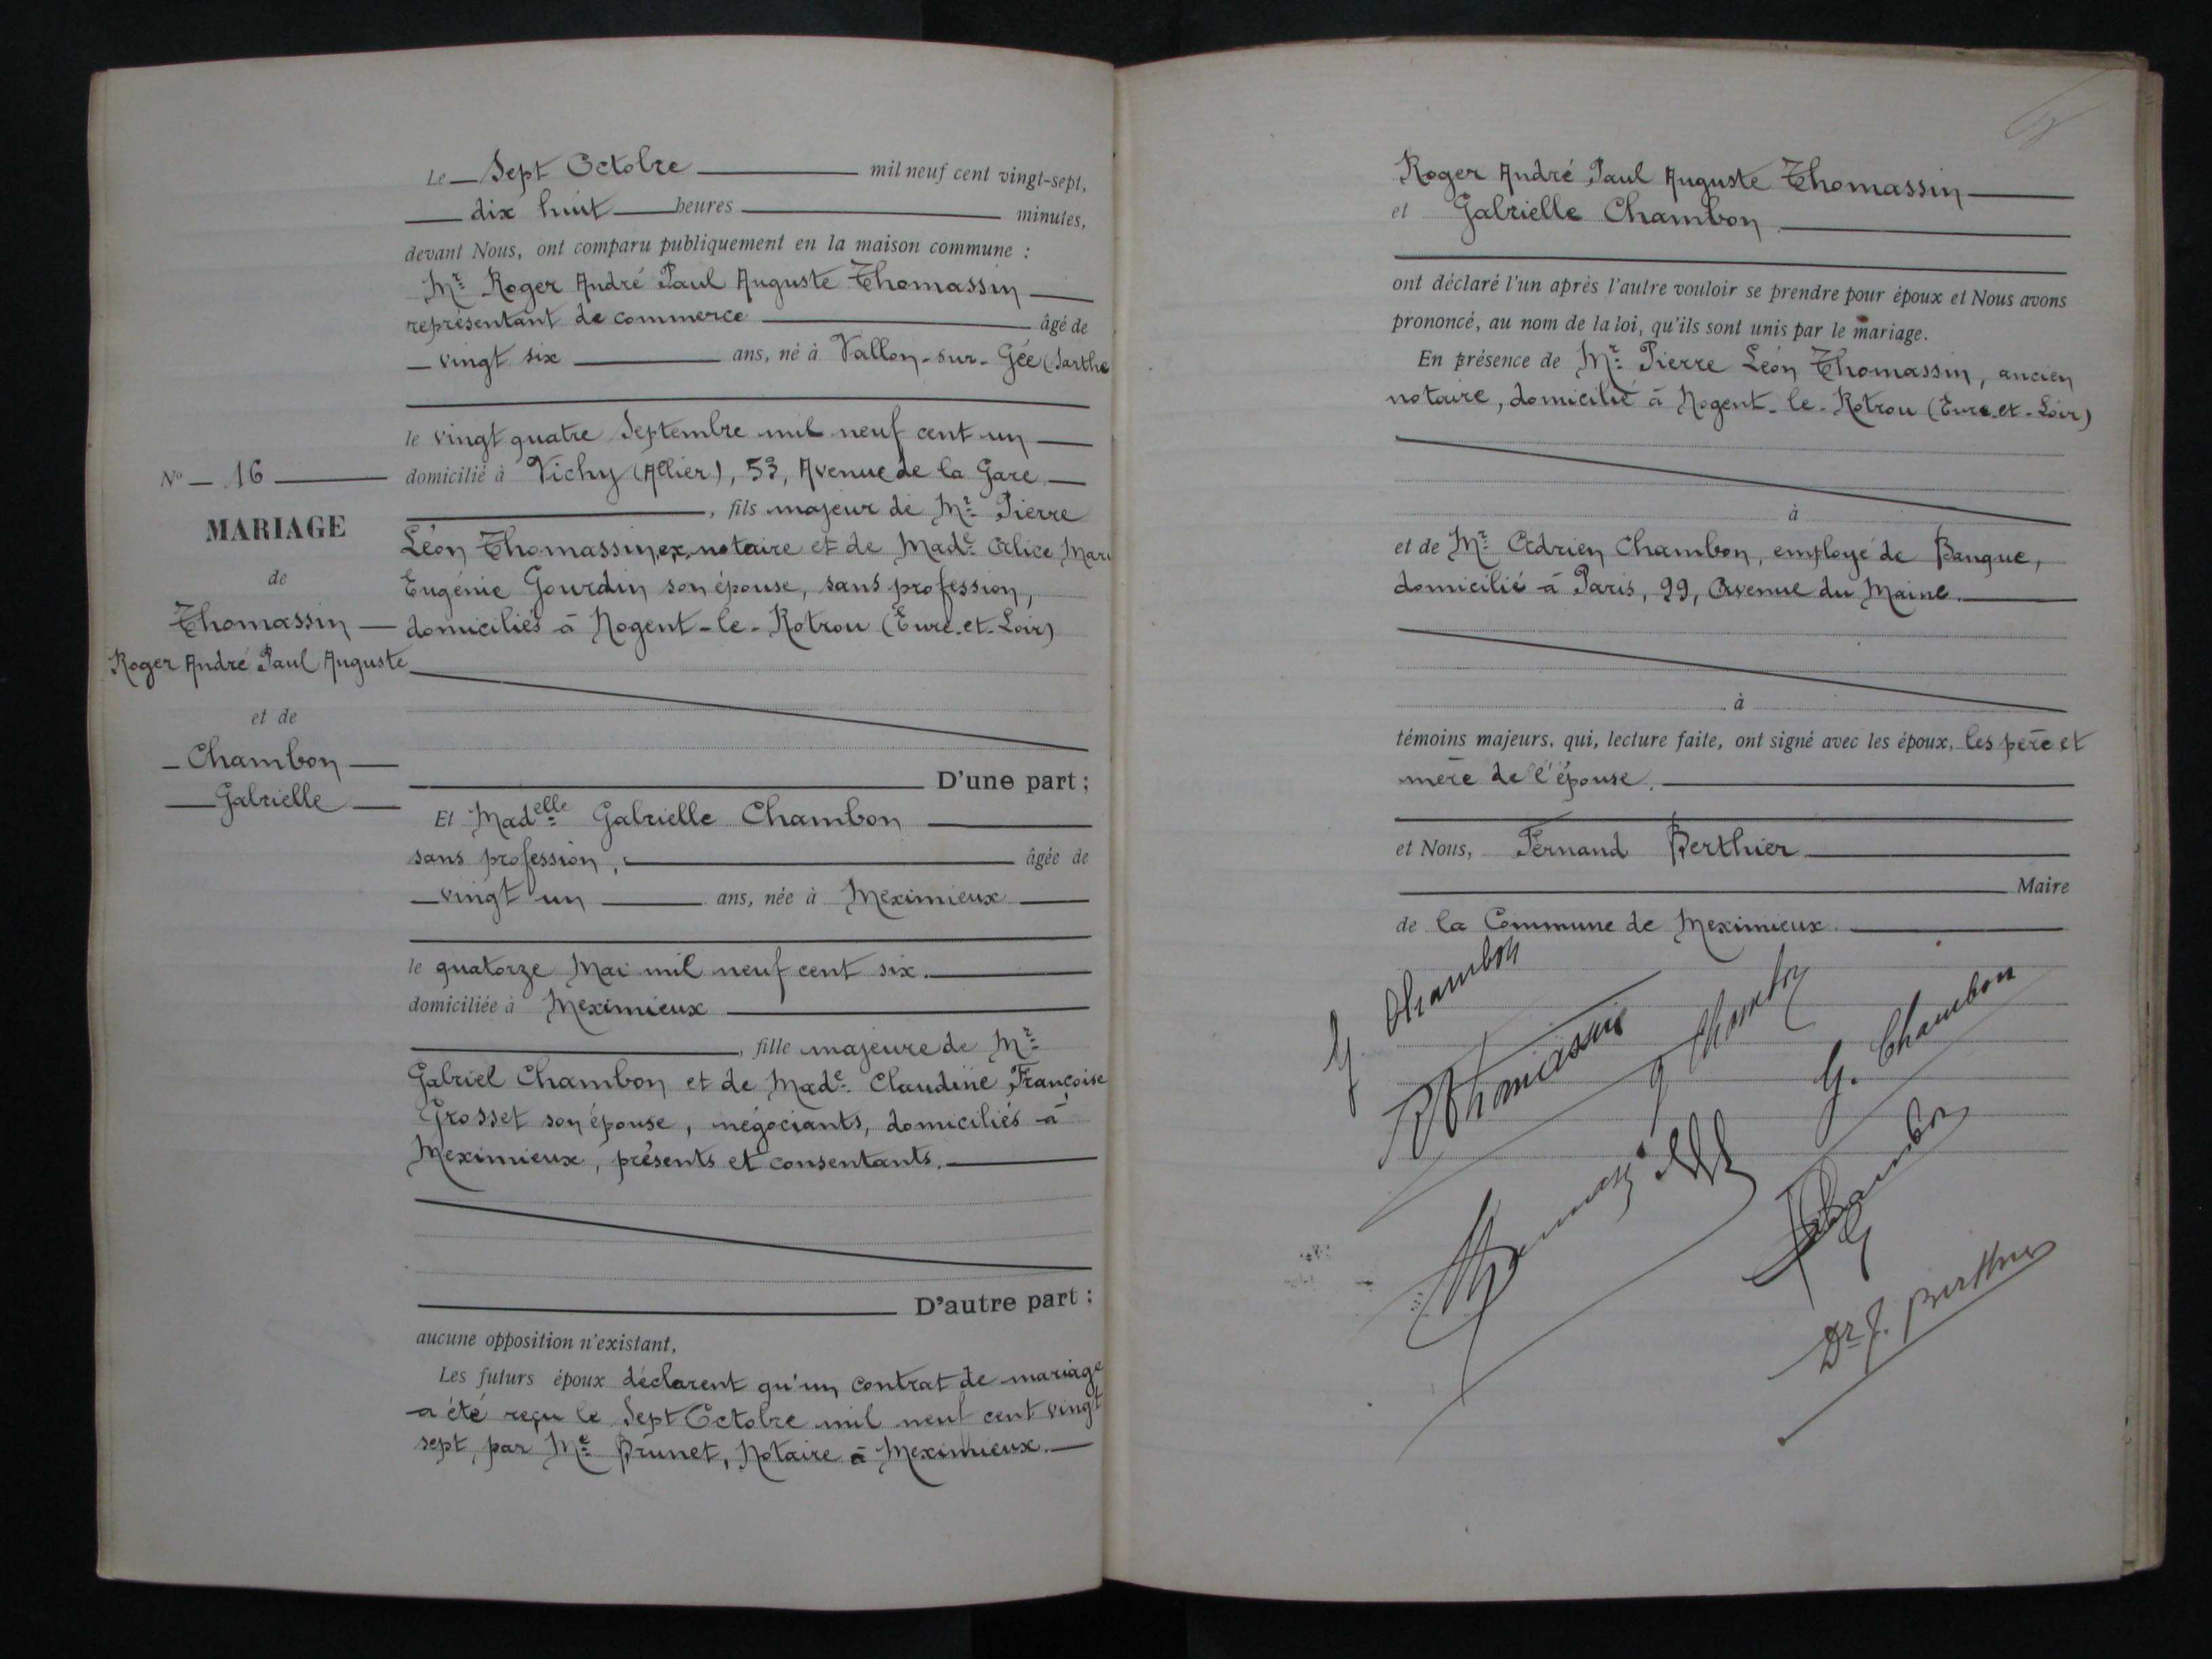 Le Sept Octobre mil neuf cent vingt-sept,
dix huit heures minutes,
devant Nous, ont comparu publiquement en la maison commune :
Mr Roger André Paul Auguste Thomassin
représentant de commerce âgé de
vingt six ans, né à Vallon-sur-Gée (Sarthe
le vingt quatre Septembre mil neuf cent un
domicilié à Vichy (Allier), 53, Avenue de la Gare
, fils majeur de Mr Pierre
Léon Thomassin, ex, notaire et de Made Alice Mari
Eugénie Gourdin son épouse, sans profession,
domiciliés à Nogent-le-Rotrou (Eure-et-Loir)
D'une part ;
Et Madelle Gabrielle Chambon
sans profession, âgée de
vingt un ans, née à Meximieux
le quatorze Mai mil neuf cent six.
domiciliée à Meximieux
, fille majeure de Mr
Gabriel Chambon et de Made Claudine Françoise
Grosset son épouse, négociants, domiciliés à
Meximieux, présents et consentants.
D'autre part :
aucune opposition n'existant,
Les futurs époux déclarent qu'un contrat de mariage
a été reçu le Sept Octobre mil neuf cent vingt
sept, par Me Brunet, Notaire à Meximieux.
No 16
MARIAGE
de
Thomassin
Roger André Paul Auguste
et de
Chambon
Gabrielle
Roger André Paul Auguste Thomassin
et Gabrielle Chambon
ont déclaré l'un après l'autre vouloir se prendre pour époux et Nous avons
prononcé, au nom de la loi, qu'ils sont unis par le mariage.
En présence de Mr Pierre Léon Thomassin, ancien
notaire, domicilié à Nogent-le-Rotrou (Eure-et-Loir)
à
et de Mr Adrien Chambon, employé de Banque,
domicilié à Paris, 99, Avenue du Maine.
à
témoins majeurs, qui, lecture faite, ont signé avec les époux, les père et
mère de l'épouse.
et Nous, Fernand Berthier
Maire
de la Commune de Meximieux.
G. Chambon
R Thomassin
g Chambon
G. Chambon
Chambon
Dr f. Berthier